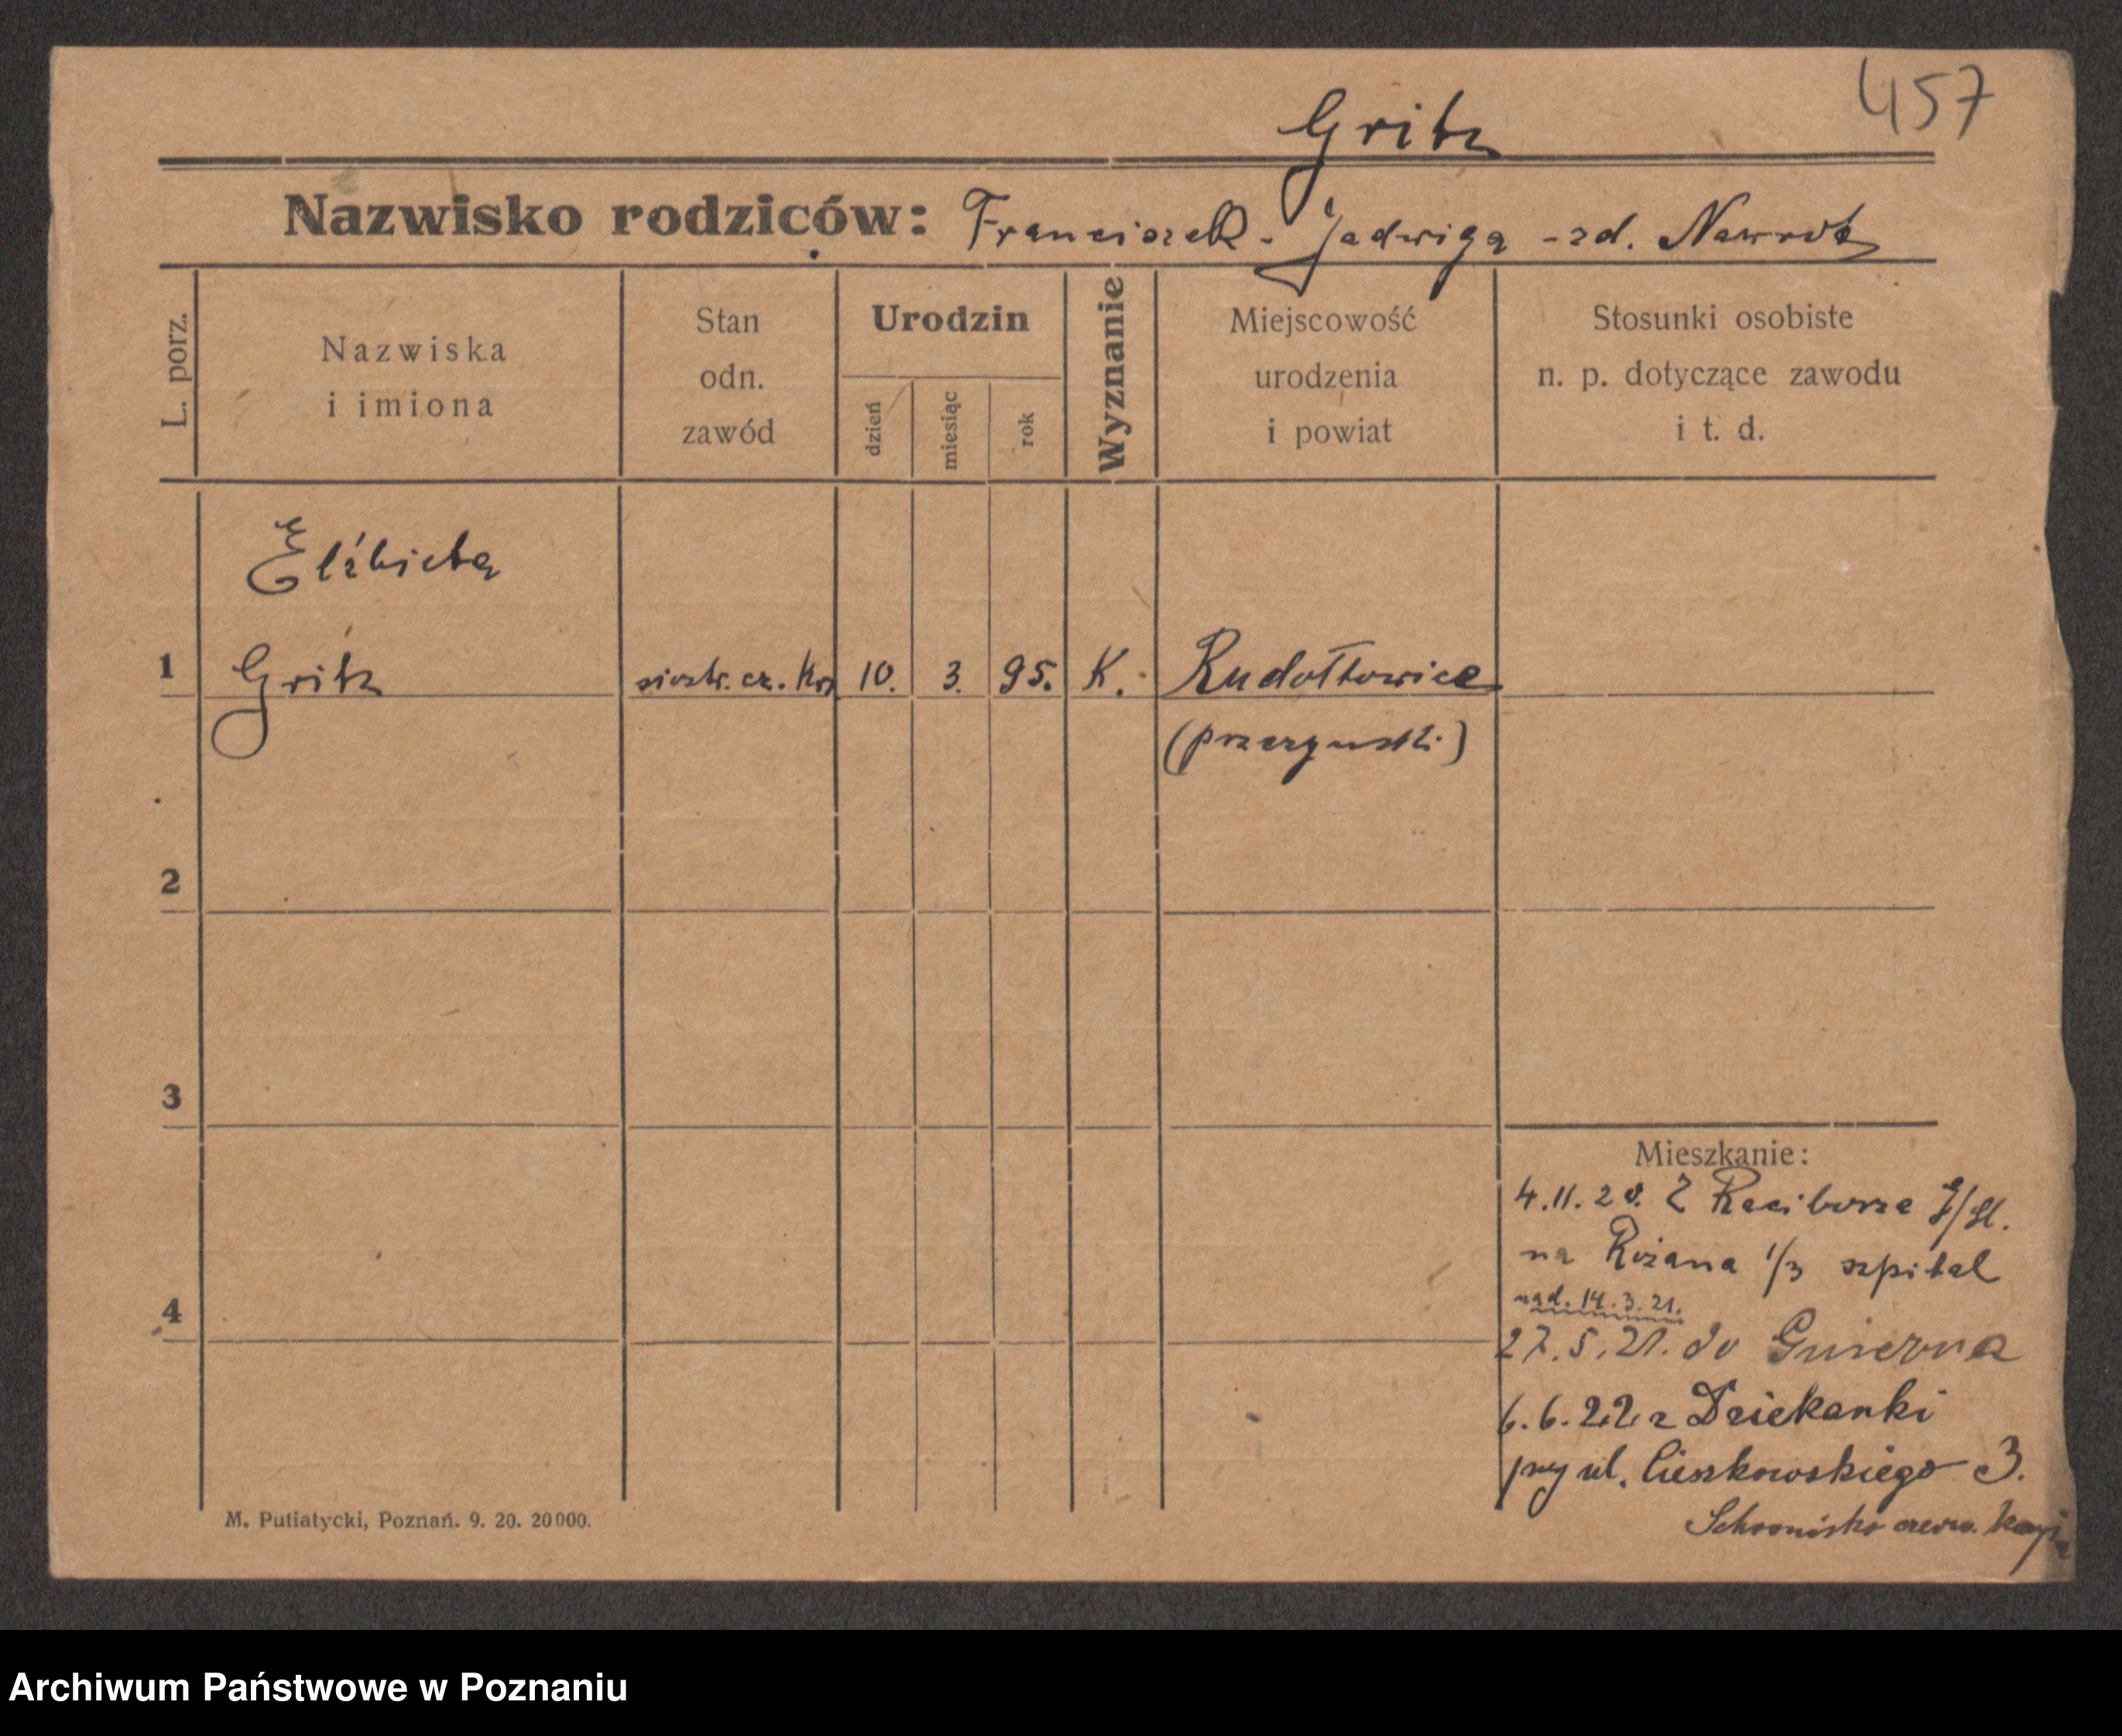 457
Gritz
Nazwisko rodziców: Franciszek - Jadwiga - zd. Nawrot
L. porz.
Nazwiska
i imiona
Stan
odn.
zawód
Urodzin
dzień
miesiąc
rok
Wyznanie
Miejscowość
urodzenia
i powiat
Stosunki osobiste
n. p. dotyczące zawodu
i t. d.
Elżbieta
1 Gritz siostr. cz. Krz 10. 3. 95. K. Rudołtowice
2
3
4
Mieszkanie:
4.11.20. Z Raciborza G/Śl.
na Rożana 1/3 szpital
nad. 14.3.21.
27.5.21. do Gniezna
6.6.22 z Dziekanki
przy ul. Cieszkowskiego 3.
Schronisko czerw.
M. Putiatycki, Poznań. 9. 20. 20000.
Archiwum Państwowe w Poznaniu